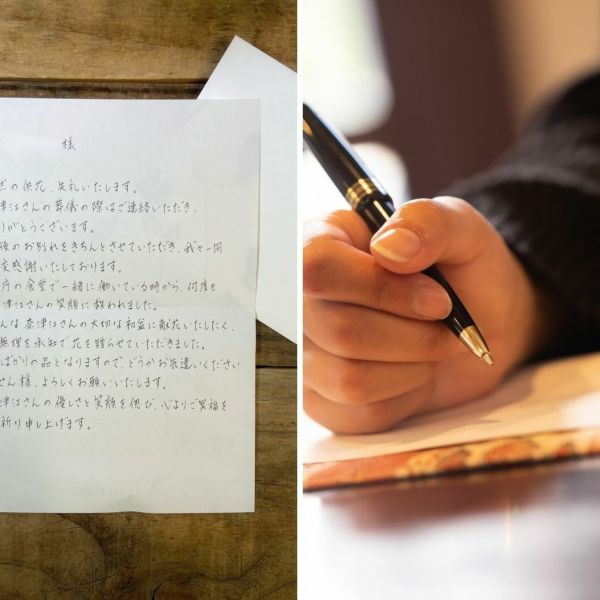 様
の供花、失礼いたします。
津江さんの葬儀の際はご連絡いただき、
りがとうございます。
後のお別れをきちんとさせていただき、我々一同
変感謝いたしております。
庁の食堂で一緒に働いている時から、何度も
津江さんの笑顔に救われました。
んな奈津江さんの大切な初盆に献花いたしたく、
無理を承知で花を贈らせていただきました。
ばかりの品となりますので、どうかお気遣いください
せん様、よろしくお願いいたします。
津江さんの優しさと笑顔を偲び、心よりご冥福を
祈り申し上げます。